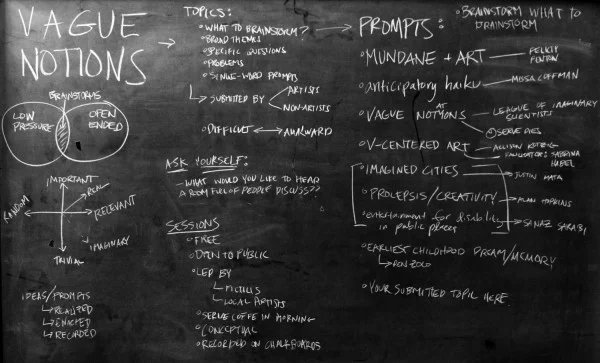 VAGUE
NOTIONS
BRAINSTORMS
LOW
PRESSURE
OPEN
ENDED
IMPORTANT
REAL
RANDOM
RELEVANT
IMAGINARY
TRIVIAL
IDEAS/PROMPTS
REALIZED
ENACTED
RECORDED
TOPICS:
WHAT TO BRAINSTORM?
BROAD THEMES
SPECIFIC QUESTIONS
PROBLEMS
SINGLE-WORD PROMPTS
SUBMITTED BY
ARTISTS
NON-ARTISTS
DIFFICULT
AWKWARD
ASK YOURSELF:
- WHAT WOULD YOU LIKE TO HEAR
A ROOM FULL OF PEOPLE DISCUSS??
SESSIONS
FREE
OPEN TO PUBLIC
LED BY
LOCAL ARTISTS
SERVE COFFE IN MORNING
CONCEPTUAL
RECORDED ON CHALKBOARDS
PROMPTS:
BRAINSTORM WHAT TO
BRAINSTORM
MUNDANE + ART
anticipatory haiku
VAGUE NOTYONS
AT
LEAGUE OF IMAGINARY
SCIENTISTS
SERVE PIES
V-CENTERED ART
IMAGINED CITIES
JUSTIN MATA
PROLEPSIS/CREATIVITY
ALAN HOPKINS
entertainment for disability
in public places
EARLIEST CHILDHOOD DREAM/MEMORY
RON ZOLO
YOUR SUBMITTED TOPIC HERE.